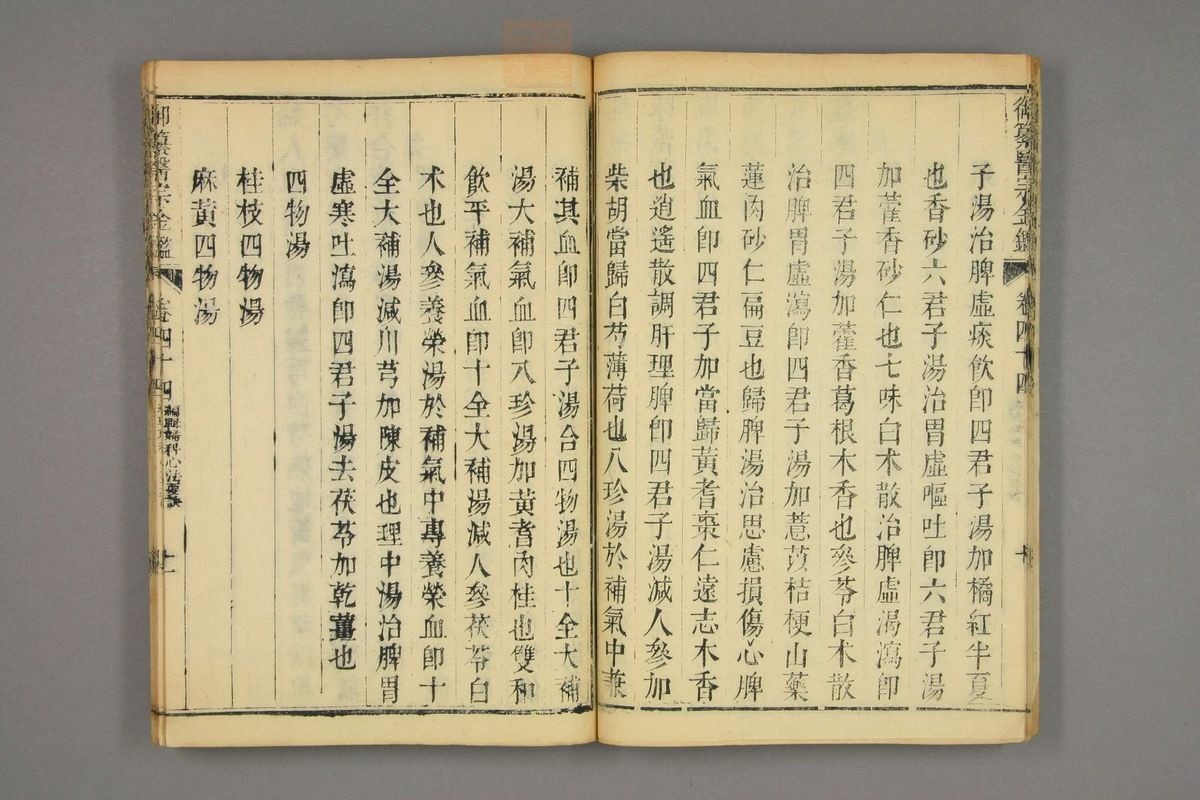 御纂醫宗金鑑
卷四十四
子湯治脾虛痰飲卽四君子湯加橘紅半夏
也香砂六君子湯治胃虛嘔吐卽六君子湯
加藿香砂仁也七味白朮散治脾虛渴瀉卽
四君子湯加藿香葛根木香也參苓白朮散
治脾胃虛瀉卽四君子湯加薏苡桔梗山藥
蓮肉砂仁扁豆也歸脾湯治思慮損傷心脾
氣血卽四君子加當歸黃耆棗仁遠志木香
也逍遙散調肝理脾卽四君子湯減人參加
柴胡當歸白芍薄荷也八珍湯於補氣中兼
補其血卽四君子湯合四物湯也十全大補
湯大補氣血卽八珍湯加黃耆肉桂也雙和
飲平補氣血卽十全大補湯減人參茯苓白
朮也人參養榮湯於補氣中專養榮血卽十
全大補湯減川芎加陳皮也理中湯治脾胃
虛寒吐瀉卽四君子湯去茯苓加乾薑也
四物湯
桂枝四物湯
麻黃四物湯
御纂醫宗金鑑
卷四十四
編輯婦科心法要訣
十一